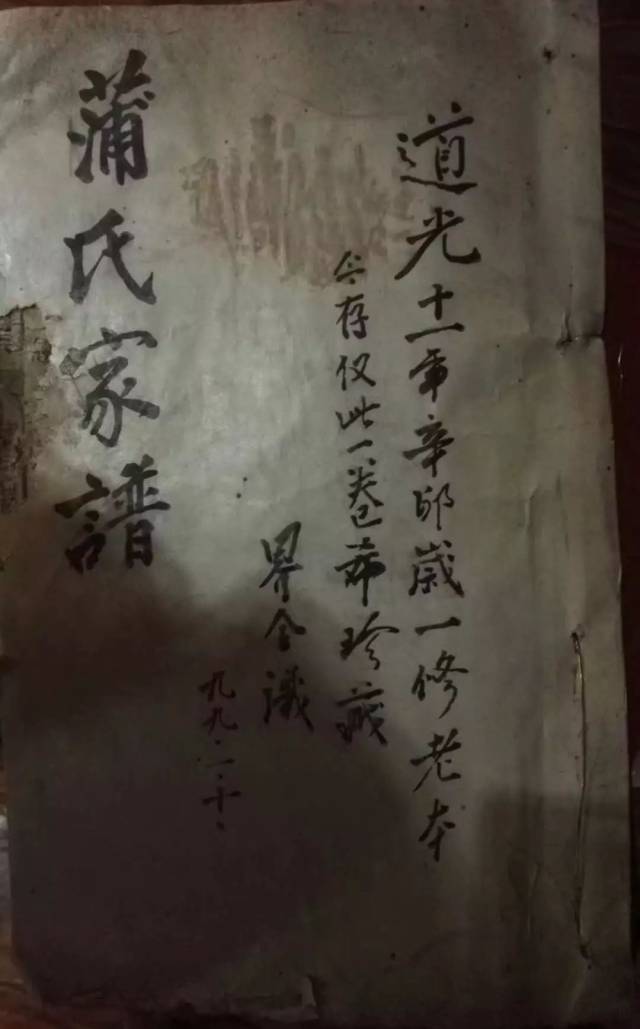 道光十一年辛卯歲一修老本
今存仅此一卷希珍藏
界令識
九九.一.十.
蒲氏家譜